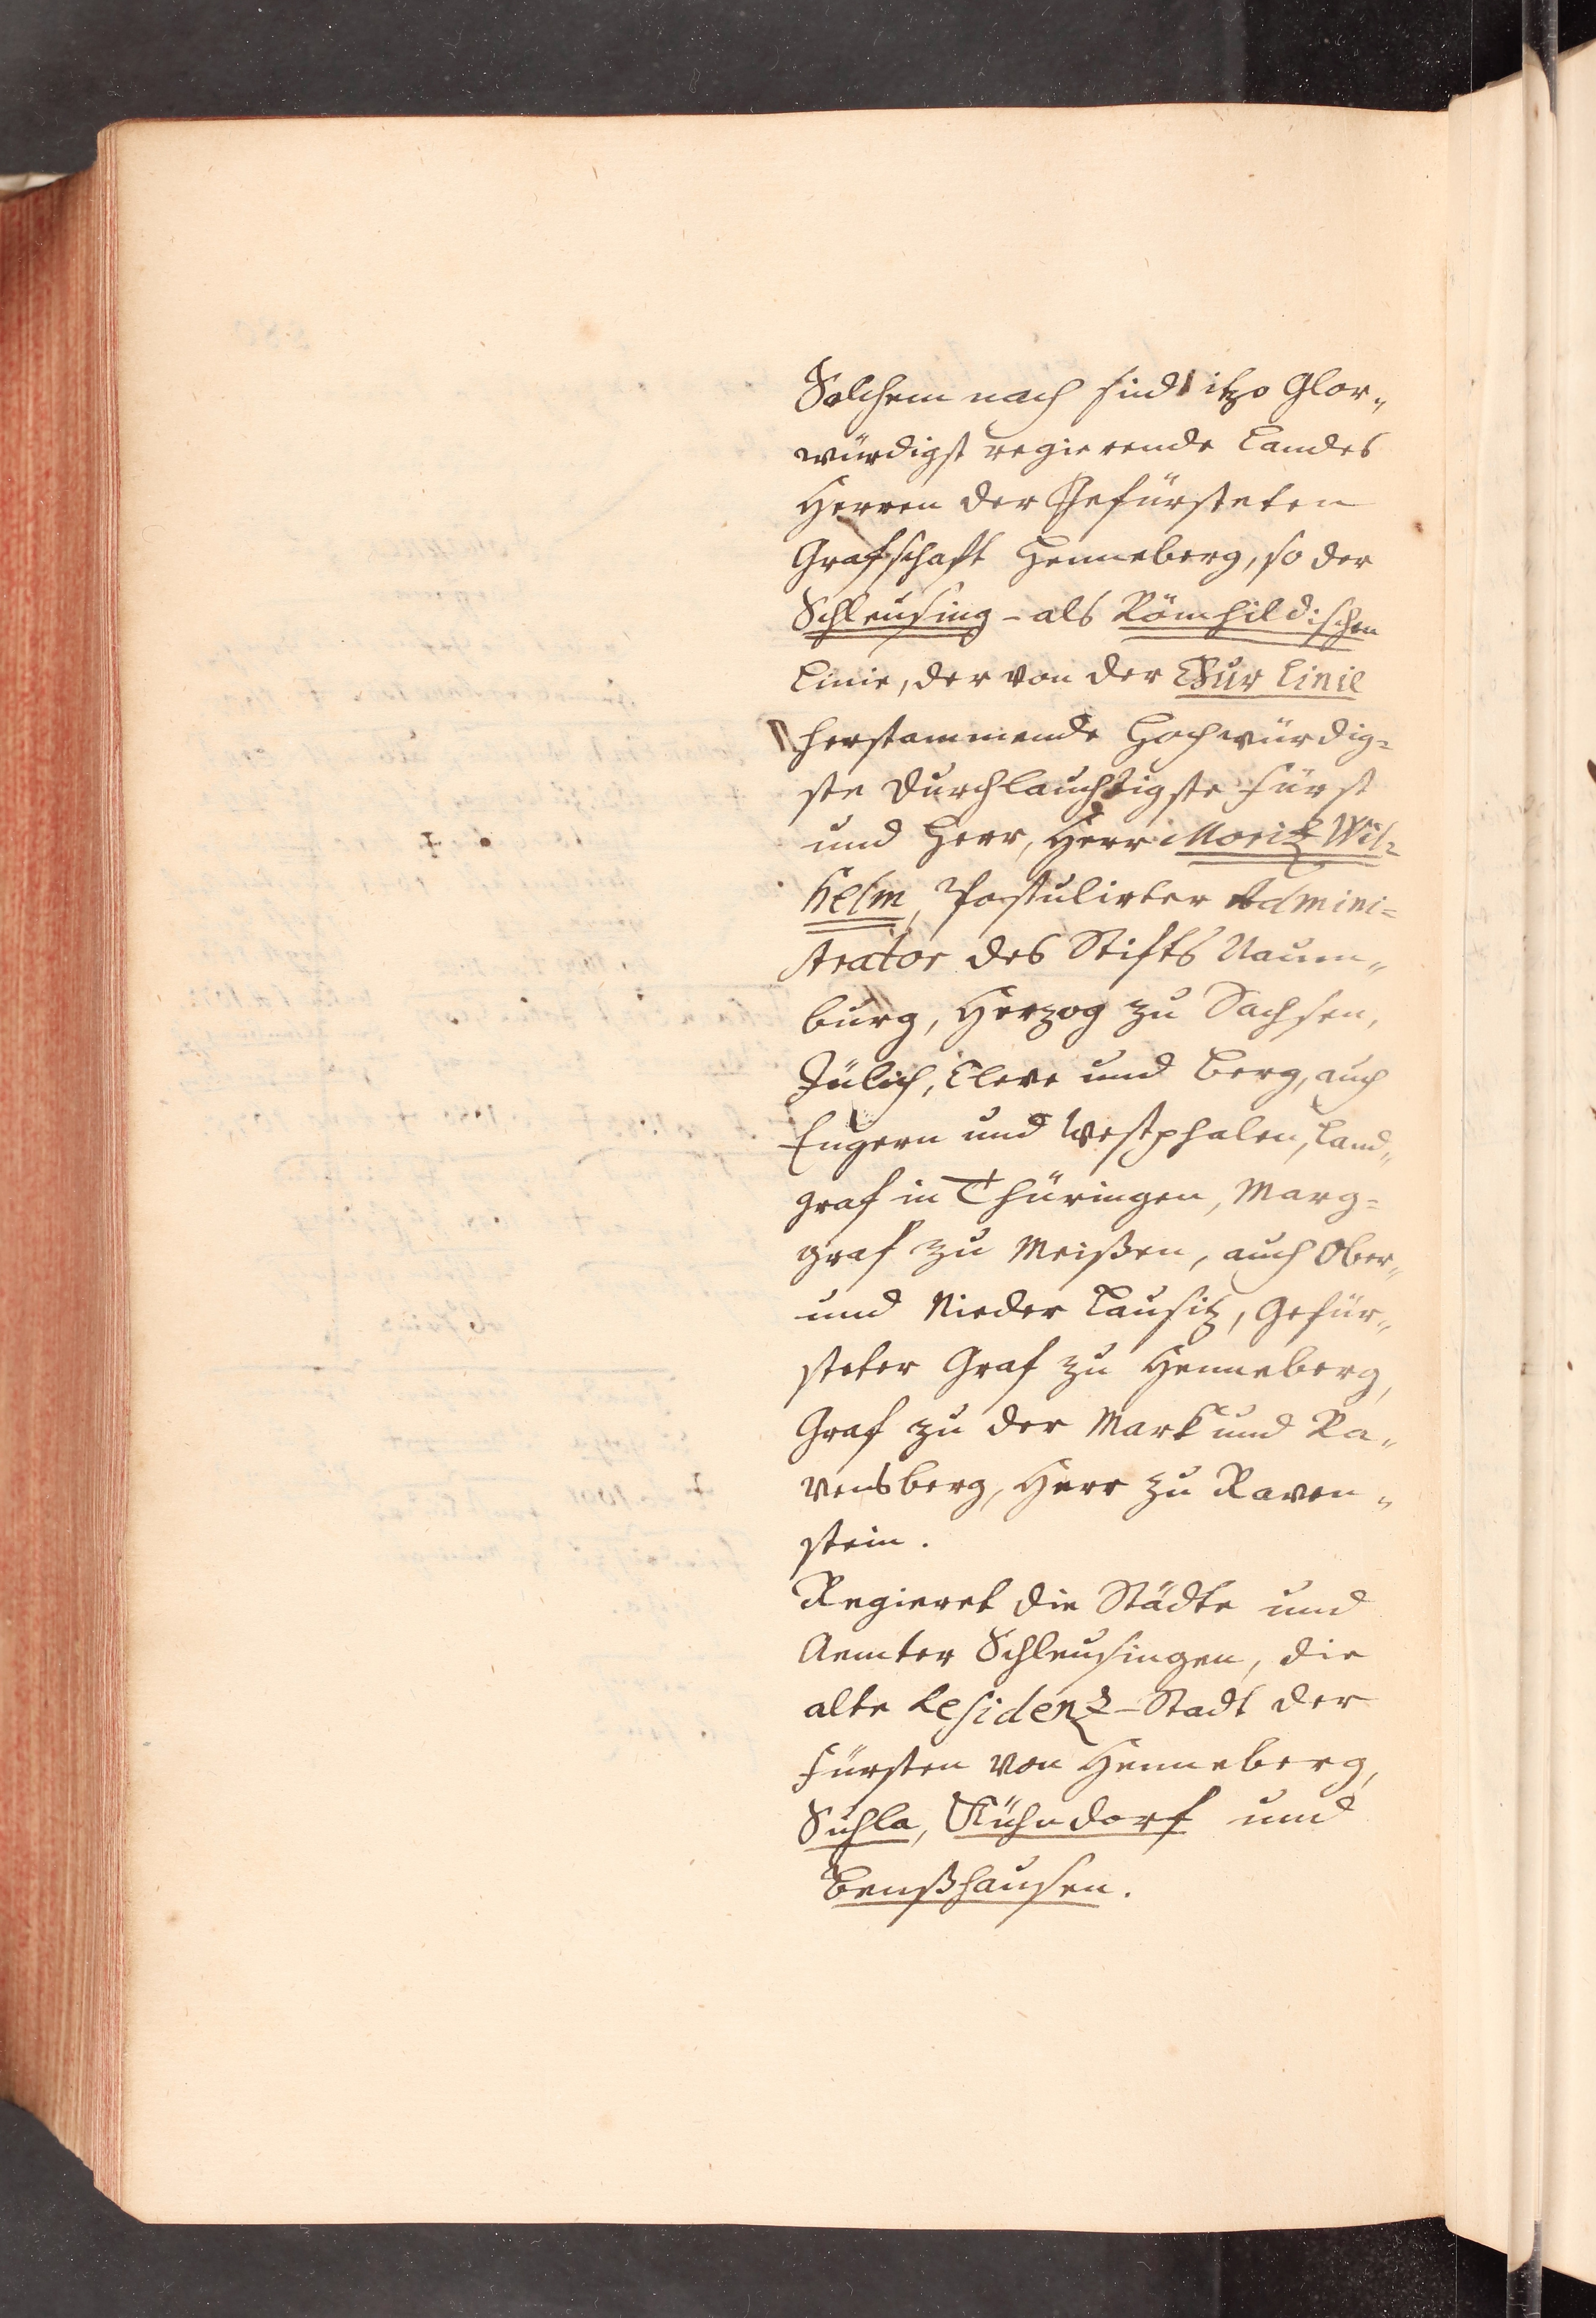 Solchem nach sind itzo Glor„
würdigst regierende Landes
Herren der Gefürsteten
Grafschaft Henneberg, so der
Schleusing - als Römhildischen
Linie, der von der Chur Linie
herstammende Hochwürdig=
ste Durchlauchtigste Fürst
und Herr, Herr Moritz Wil=
helm, Postulirter Admini=
strator des Stifts Naum„
burg, Herzog zu Sachsen,
Jülich, Cleve und Berg, auch
Engern und Westphalen, Land„
graf in Thüringen, Marg=
graf zu Meißen, auch Ober„
und Nieder Lausitz, Gefür„
steter Graf zu Henneberg,
Graf zu der Mark und Ra„
vensberg, Herr zu Raven„
stein.
Regieret die Städte und
Aemter Schleusingen, die
alte Residenz-Stadt der
Fürsten von Henneberg,
Suhla, Kühndorf und
Benßhausen.